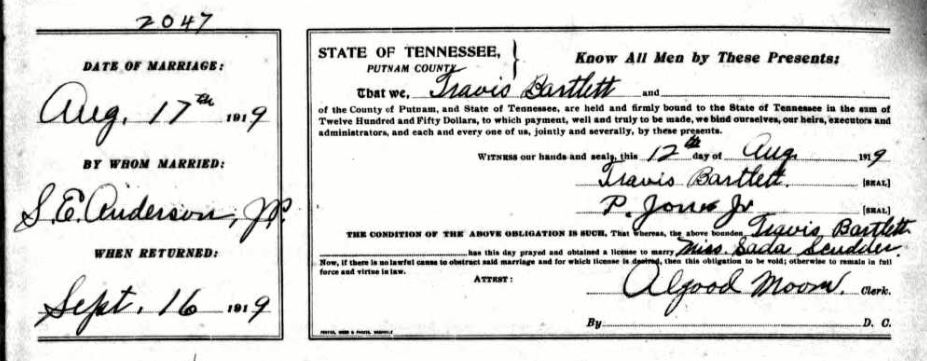 2047
DATE OF MARRIAGE:
Aug. 17th 1919
BY WHOM MARRIED:
S. E. Anderson, J.P.
WHEN RETURNED:
Sept. 16 1919
STATE OF TENNESSEE,
PUTNAM COUNTY
Know All Men by These Presents:
That we, Travis Bartlett and
of the County of Putnam, and State of Tennessee, are held and firmly bound to the State of Tennessee in the sum of
Twelve Hundred and Fifty Dollars, to which payment, well and truly to be made, we bind ourselves, our heirs, executors and
administrators, and each and every one of us, jointly and severally, by these presents.
WITNESS our hands and seals, this 12th day of Aug 1919
Travis Bartlett. [SEAL]
P. Jones Jr [SEAL]
THE CONDITION OF THE ABOVE OBLIGATION IS SUCH, That whereas, the above bounden Travis Bartlett
has this day prayed and obtained a license to marry Miss. Sada Scudder.
Now, if there is no lawful cause to obstruct said marriage and for which license is desired, then this obligation to be void; otherwise to remain in full
force and virtue in law.
ATTEST:
Algood Moore. Clerk.
By D. C.